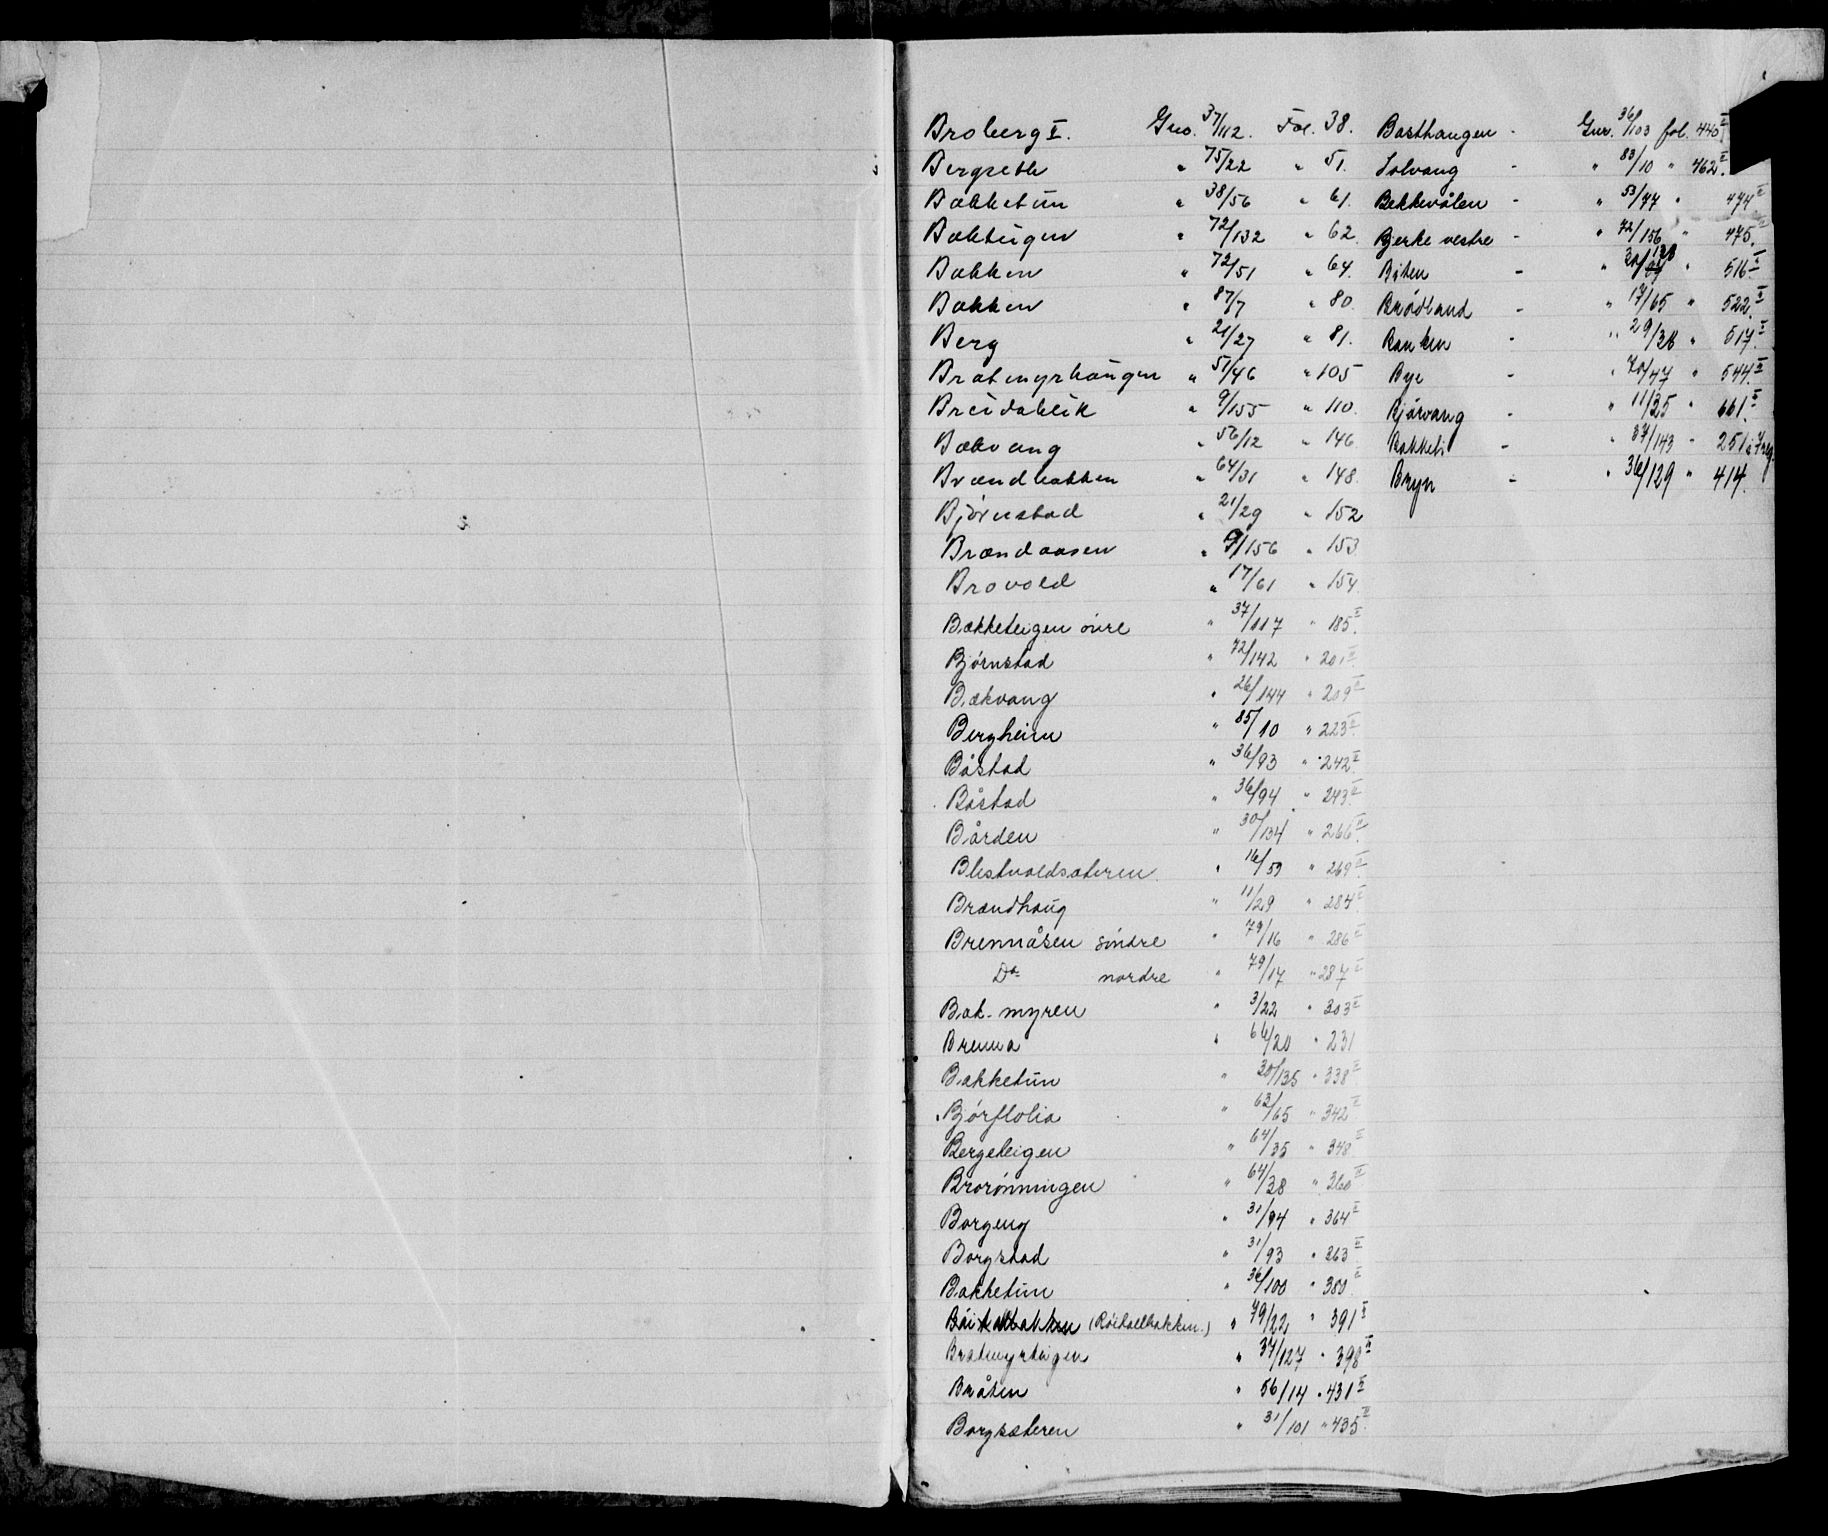 Broberg I. Gno. 37/112. Fol. 38.
Bergseth " 75/22 " 51.
Bakketun " 38/56 " 61.
Bækteigen " 72/132 " 62.
Bakken " 72/51 " 64.
Bakken " 87/7 " 80.
Berg " 21/27 " 81.
Bratmyrhaugen " 51/46 " 105
Breidablik " 9/155 " 110.
Bækvang " 56/12 " 146
Brændbakken " 64/31 " 148.
Bjørnstad " 21/29 " 152
Brændaasen " 9/156 " 153.
Brovold " 17/61 " 154.
Bækketeigen øvre " 37/117 " 185 II
Bjørnstad " 72/142 " 201 II
Bækvang " 26/144 " 209 II
Bergheim " 85/10 " 223 II
Båstad " 36/93 " 242 II
Båstad " 36/94 " 243 II
Bården " 30/134 " 266 II
Blestvoldsæteren " 16/59 " 269 II
Brændhaug " 11/29 " 284 II
Brennåsen søndre " 79/16 " 286 II
Do nordre " 79/17 " 287 II
Bak-myren " 3/22 " 303 II
Brenna " 66/20 " 231
Bakketun " 30/135 " 338 II
Bjørflolia " 62/65 " 342 II
Bergeteigen " 64/35 " 348 II
Brorønningen " 64/38 " 360 II
Borgeng " 31/94 " 364 II
Borgstad " 31/93 " 363 II
Bakketun " 36/100 " 380 II
(Røitoelbakken.) " 79/22 " 391 II
Bratmyrteigen " 37/127 " 398 II
Bråten " 56/14 " 431 II
Borgsæteren " 31/101 " 435 II
Basthaugen - Gnr. 36/103 fol. 440 II
Solvang - " 83/10 " 462 II
Bekkevålen - " 53/77 " 474 II
Bjerke vestre - " 72/156 " 475 II
Biten - " 516 II
Brødland - " 17/65 " 522 II
Banken - " 29/38 " 517 II
Bye - " 70/47 " 544 II
Bjørvang - " 11/35 " 661 II
Bakketi - " 37/143 " 251
Bryn - " 36/129 " 414.